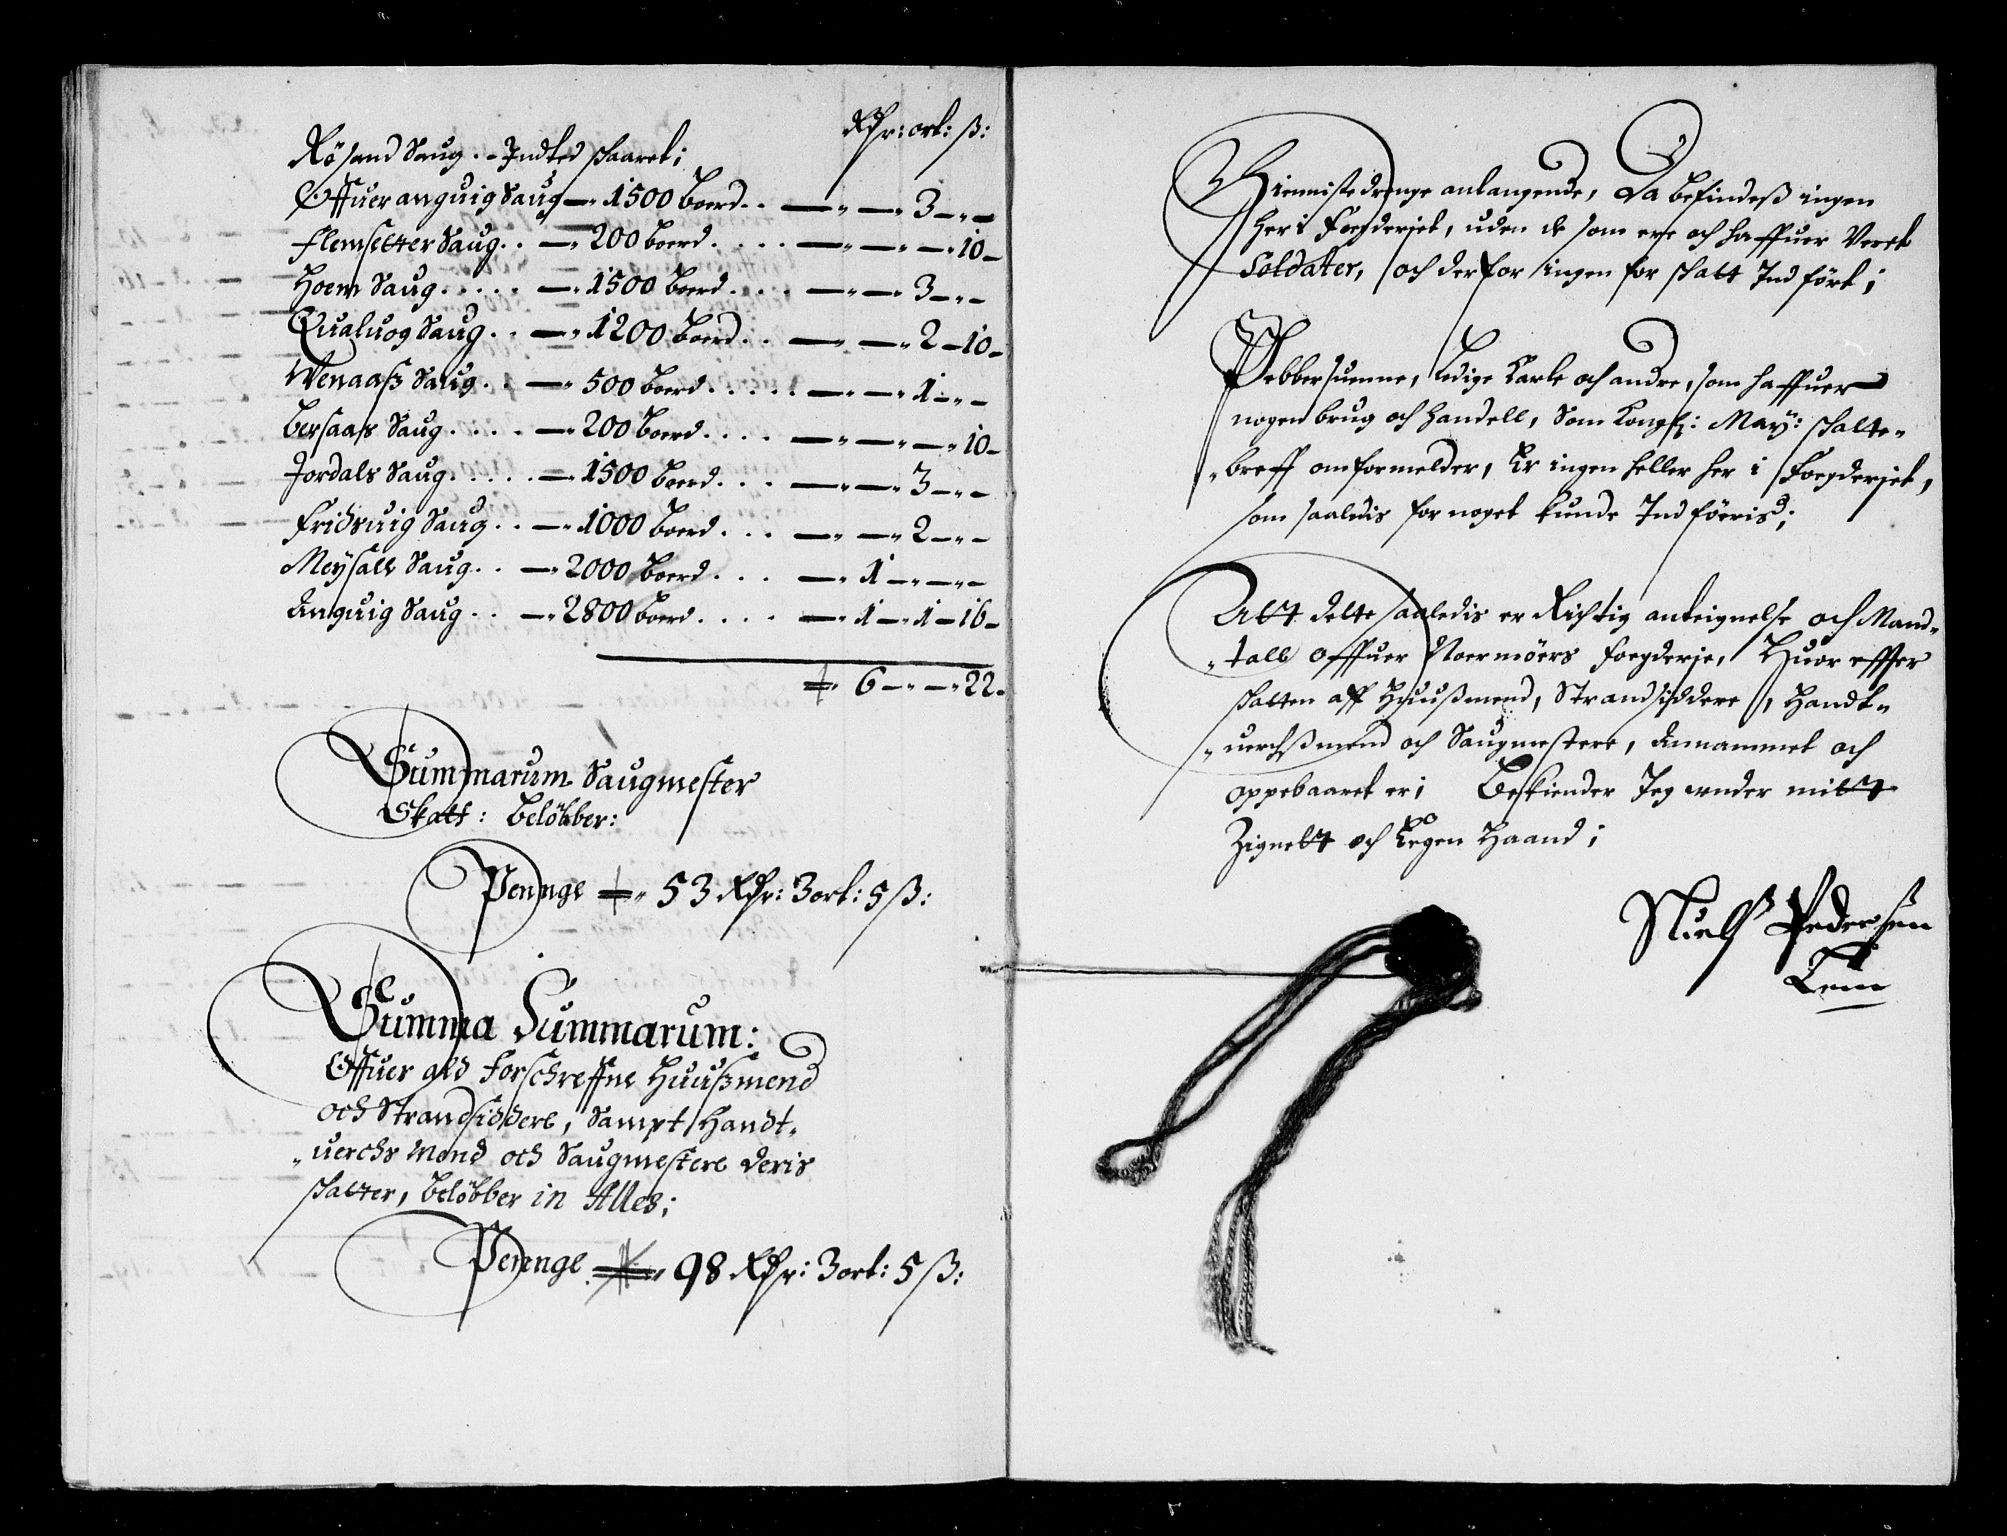 Rdr: ort: ß:
Røsand Saug .. Indted skaaret;
Offueranguig Saug — 1500 Boerd .. — „ — „ 3 — „ —
Flemsetter Saug .. — „ 200 boerd .... — „ — „ — „ 10 —
Hoem Saug ..... — „ 1500 Boerd ... — „ — „ 3 — „ —
Qualuog Saug .. — „ 1200 Boerd .. — „ — „ 2 — 10 —
Wenaaß Saug .. — „ 500 Boerd ..... — „ — „ 1 — „ —
Bersaas Saug .... — „ 200 Boerd .... — „ — „ — „ 10 —
Jordals Saug ..... — „ 1500 Boerd ... — „ — „ 3 — „ —
Fridsuig Saug .. — „ 1000 Boerd ... — „ — „ 2 — „ —
Meysall Saug .. — „ 2000 Boerd ... — „ 1 — „ — „ —
Anguig Saug .. — „ 2800 boerd .... — „ 1 — „ 1 — 16 —
„ 6 — „ — „ 22 „
Summarum Saugmester
Skatt: Beløbber:
Penge „ 53 Rdr: 3 ort: 5 ß:
Summa Summarum:
Offuer ald forschreffne Huußmend
och Strandsiddere, Sampt Handt„
„uerchs mend och Saugmestere deris
skatter, beløbber in Alles;
Penge „ 98 Rdr: 3 ort: 5 ß:
Thiennistedrenge anlangende, Da befindeß ingen
her i Fogderiet, uden de som ere och haffuer Veret
Soldater, och derfor ingen for skatt Indført;
Pebbersuenne, Ledige Karle och andre, som haffuer
nogen brug och handell, Som Kongl: May: skatte„
„breff omformelder, Er ingen heller her i Foegderiet,
som saaledis for noget kunde Indføeris;
Alt dette saaledis er Richtig anteignelse och Mand„
„tall offuer Noermøers foegderie, Huor effter
skatten aff Huußmend, Strandsiddere, Handt„
„uerchßmend och Saugmestere, Annammet och
oppebaaret er; Bekiender Jeg under mitt
Zignett och Eegen Haand;
Nielß Pedersen
Lem